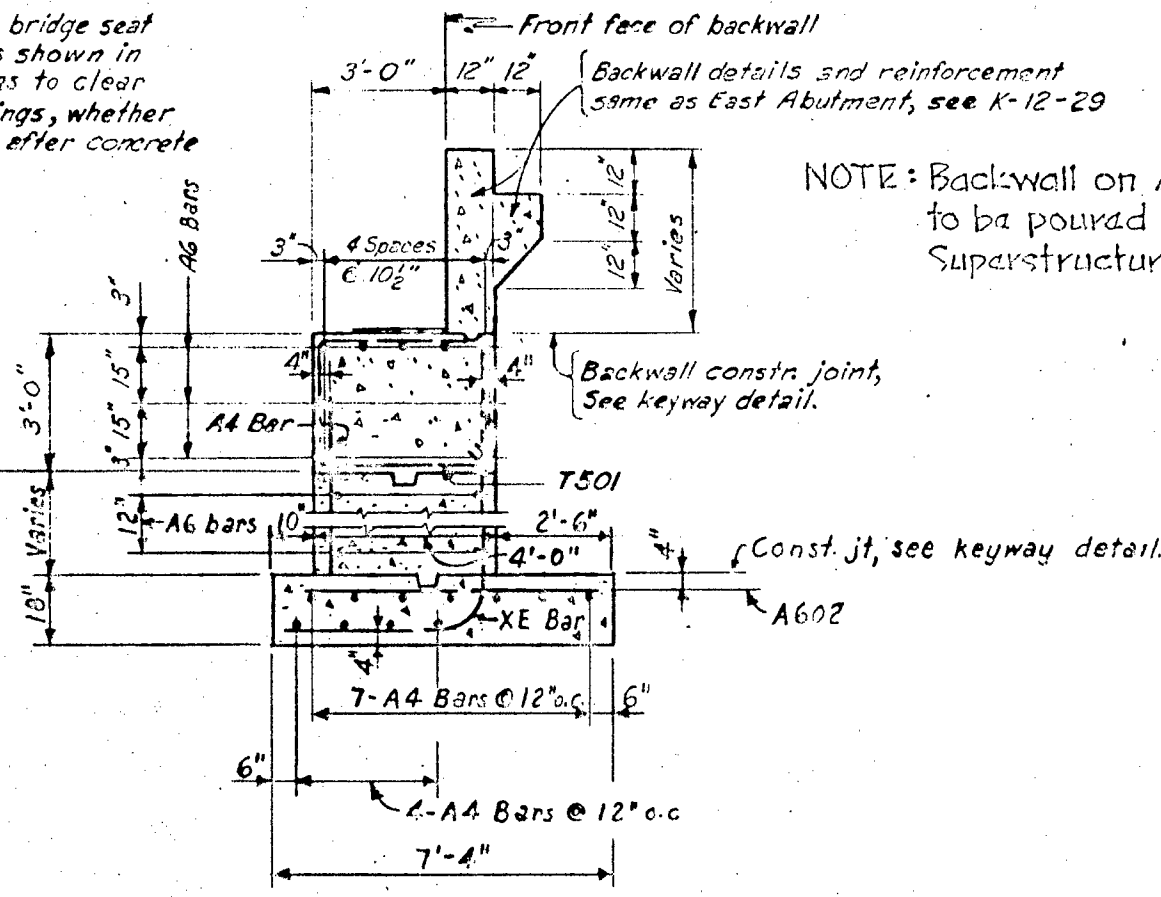 bridge seat
s shown in
as to clear
ings, whether
after concrete
Front face of backwall
3'-0" 12" 12"
Backwall details and reinforcement
same as East Abutment, see K-12-29
NOTE: Backwall on
to be poured
Superstructur
A6 Bars
3" 4 Spaces 3"
@ 10½"
12"
12"
12"
Varies
3"
15"
15"
3"
3'-0"
4" 4"
Backwall constr. joint,
See keyway detail.
A4 Bar
T501
Varies
12"
A6 bars 10" 2'-6"
4'-0"
4"
Const. jt, see keyway detail.
18"
XE Bar
A602
4"
7-A4 Bars @ 12" o.c. 6"
6"
4-A4 Bars @ 12" o.c
7'-4"